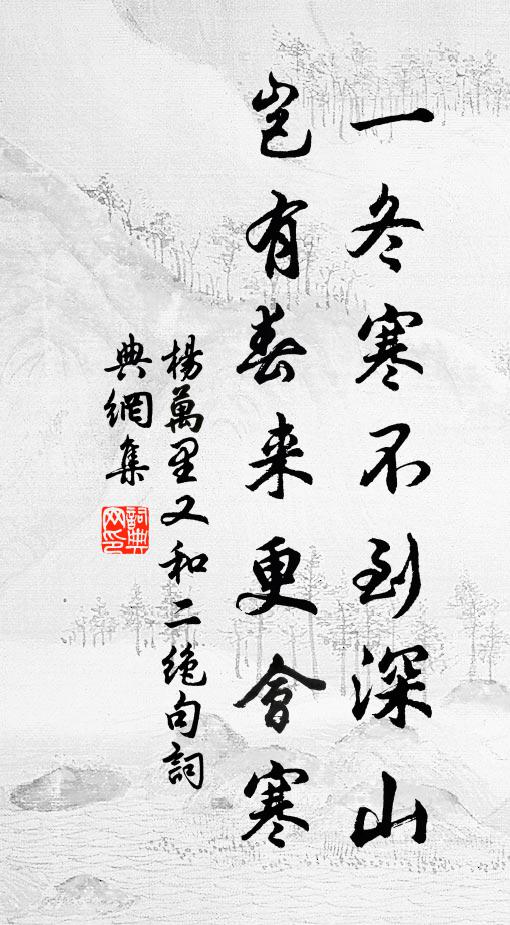 一冬寒不到深山
岂有春来更會寒
楊萬里又和二絶句詞
典網集
詞典
网印